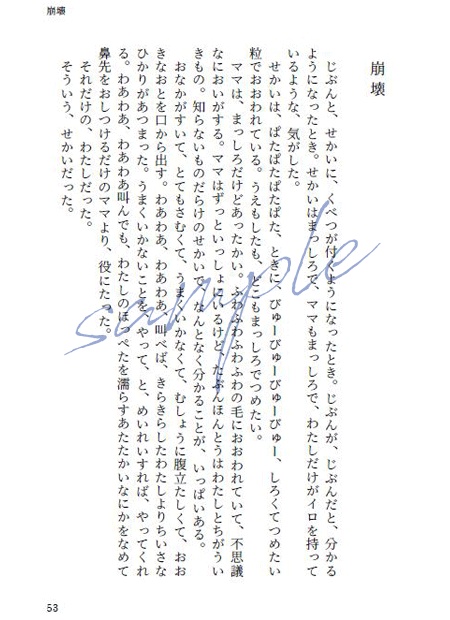 崩壊
崩壊
じぶんと、せかいに、くべつが付くようになったとき。じぶんが、じぶんだと、分かる
ようになったとき。せかいはまっしろで、ママもまっしろで、わたしだけがイロを持って
いるような、気がした。
せかいは、ぱたぱたぱたぱた、ときに、びゅーびゅーびゅーびゅー、しろくてつめたい
粒でおおわれている。うえもしたも、どこもまっしろでつめたい。
ママは、まっしろだけどあったかい。ふわふわふわふわの毛におおわれていて、不思議
なにおいがする。ママはずっといっしょにいるけど、たぶんほんとうはわたしとちがうい
きもの。知らないものだらけのせかいで、なんとなく分かることが、いっぱいある。
おなかがすいて、とてもさむくて、うまくいかなくて、むしょうに腹立たしくて、おお
きなおとを口から出す。わあわあ、わあわあ、叫べば、きらきらしたわたしよりちいさな
ひかりがあつまった。うまくいかないことを、やって、と、めいれいすれば、やってくれ
る。わあわあ、わあわあ叫んでも、わたしのほっぺたを濡らすあたたかいなにかをなめて
鼻先をおしつけるだけのママより、役にたった。
それだけの、わたしだった。
そういう、せかいだった。
sample
53